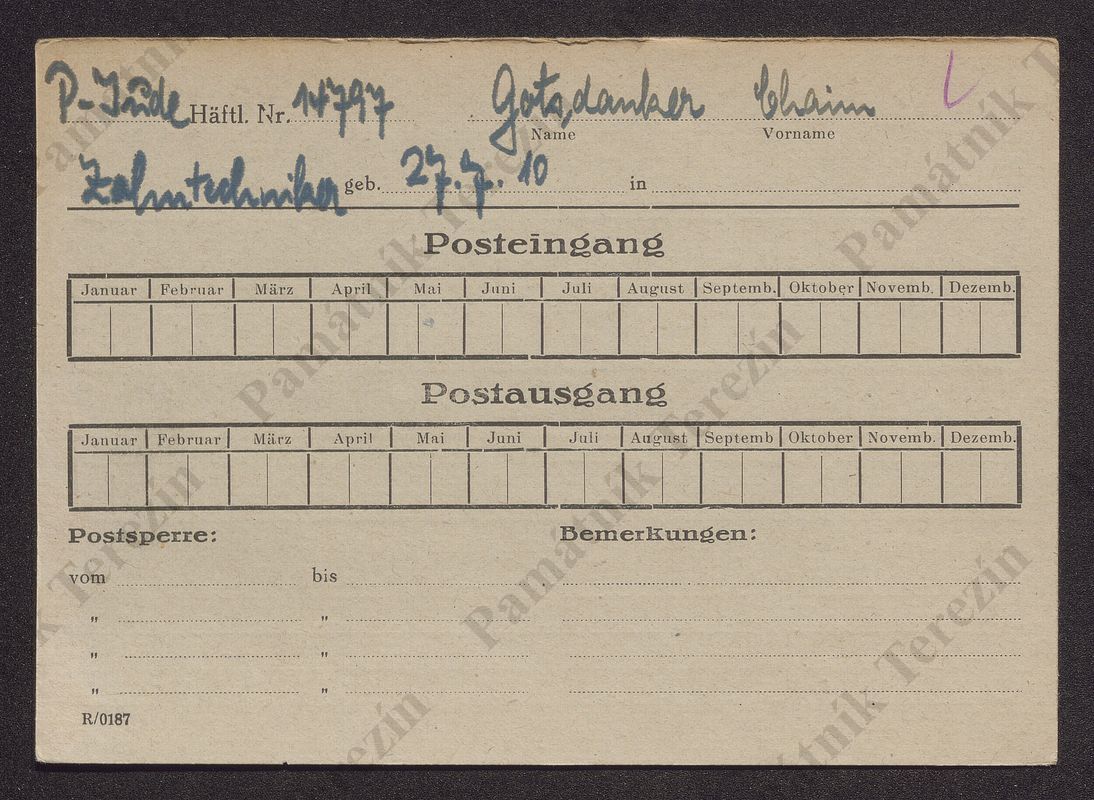 P-Jude Häftl. Nr. 14797 Gotzdanker Chaim
Name Vorname
Zahntechniker geb. 27.7.10 in
Posteingang
Januar Februar März April Mai Juni Juli August Septemb. Oktober Novemb. Dezemb.
Postausgang
Januar Februar März April Mai Juni Juli August Septemb Oktober Novemb. Dezemb.
Postsperre: Bemerkungen:
vom bis
" "
" "
" "
R/0187
Památník Terezín